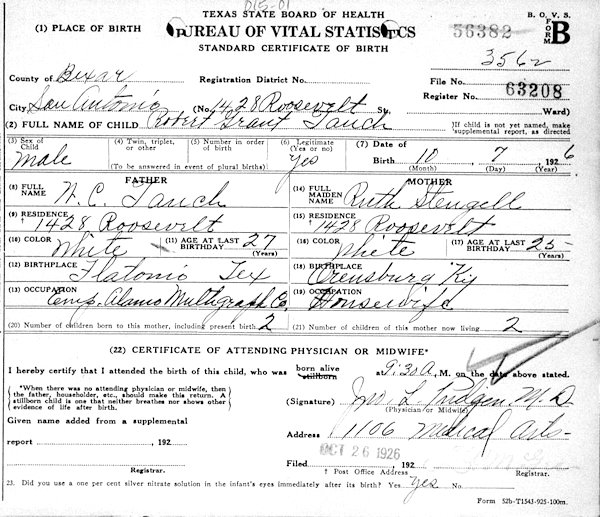 TEXAS STATE BOARD OF HEALTH
B. O. V. S.
(1) PLACE OF BIRTH
BUREAU OF VITAL STATISTICS
36382
FORM B
STANDARD CERTIFICATE OF BIRTH
3562
County of Bexar Registration District No. File No.
63208
City San Antonio (No. 1428 Roosevelt St. Register No. Ward)
(2) FULL NAME OF CHILD Robert Grant Tauch
If child is not yet named, make supplemental report, as directed
(3) Sex of Child Male
(4) Twin, triplet, or other
(5) Number in order of birth
(To be answered in event of plural births)
(6) Legitimate (Yes or no) Yes
(7) Date of Birth 10 7 1926
(Month) (Day) (Year)
FATHER
MOTHER
(8) FULL NAME N. C. Tauch
(14) FULL MAIDEN NAME Ruth Stengell
(9) RESIDENCE † 1428 Roosevelt
(15) RESIDENCE † 1428 Roosevelt
(10) COLOR White (11) AGE AT LAST BIRTHDAY 27 (Years)
(16) COLOR White (17) AGE AT LAST BIRTHDAY 25 (Years)
(12) BIRTHPLACE Flatonia Tex
(18) BIRTHPLACE Orensburg Ky
(13) OCCUPATION Emp. Alamo Multigraph Co.
(19) OCCUPATION Housewife
(20) Number of children born to this mother, including present birth 2
(21) Number of children of this mother now living 2
(22) CERTIFICATE OF ATTENDING PHYSICIAN OR MIDWIFE*
I hereby certify that I attended the birth of this child, who was born alive stillborn at 9:30 A. M. on the date above stated.
*When there was no attending physician or midwife, then the father, householder, etc., should make this return. A stillborn child is one that neither breathes nor shows other evidence of life after birth.
(Signature) Jno. L. Pridgen M. D.
(Physician or Midwife)
Given name added from a supplemental
Address 1106 Medical Arts
report , 192
OCT 26 1926
Filed , 192
Registrar.
† Post Office Address
Registrar.
23. Did you use a one per cent silver nitrate solution in the infant's eyes immediately after its birth? Yes Yes No
Form 52b-T1543-925-100m.